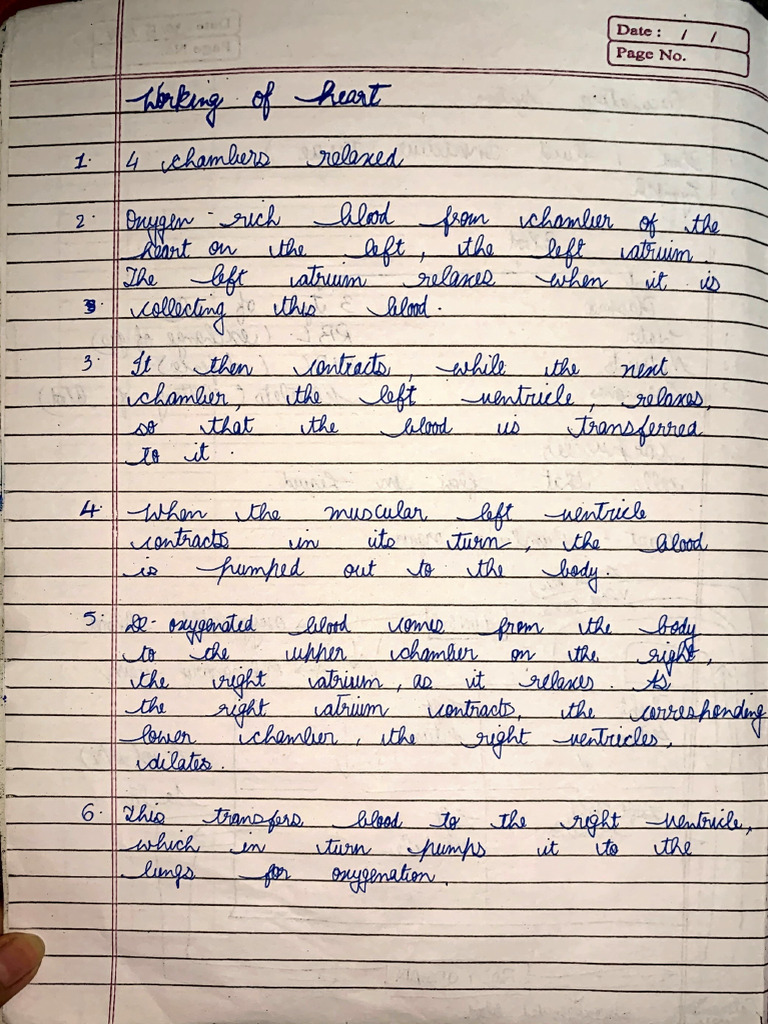 Date : / /
Page No.
Working of heart
1. 4 chambers relaxed
2. Oxygen-rich blood from chamber of the
heart on the left, the left atrium.
The left atrium relaxes when it is
collecting this blood.
3. It then contracts, while the next
chamber, the left ventricle, relaxes,
so that the blood is transferred
to it.
4. When the muscular left ventricle
contracts in its turn, the blood
is pumped out to the body.
5. De-oxygenated blood comes from the body
to the upper chamber on the right,
the right atrium, as it relaxes. As
the right atrium contracts, the corresponding
lower chamber, the right ventricles,
dilates.
6. This transfers blood to the right ventricle,
which in turn pumps it to the
lungs for oxygenation.